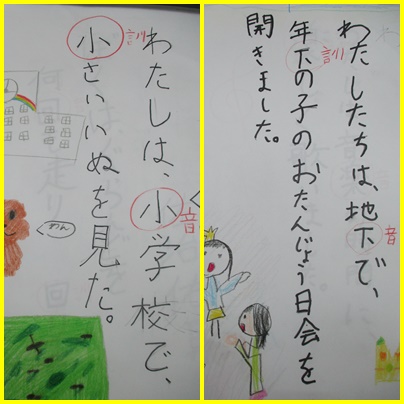 わたしは、小学校で、
小さいいぬを見た。
訓
音
わん
わたしたちは、地下で、
年下の子のおたんじょう日会を
開きました。
訓
音